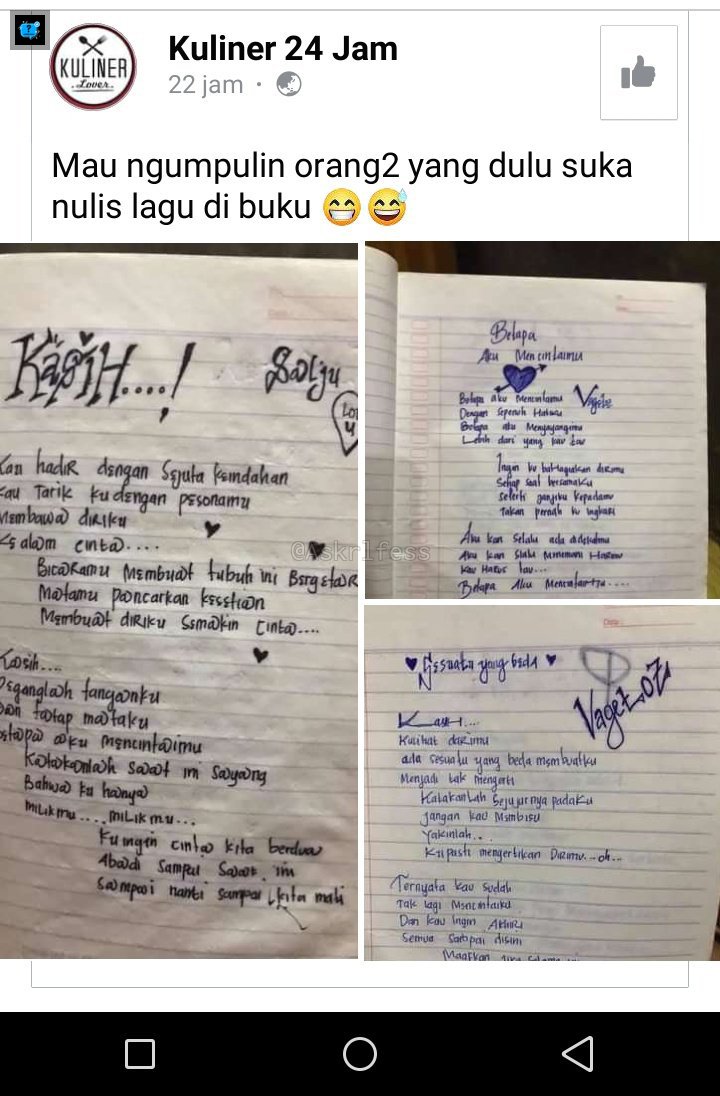 KULINER
Lover
Kuliner 24 Jam
22 jam
Mau ngumpulin orang2 yang dulu suka
nulis lagu di buku 😁😅
KasiH....!
Salju
Lov
u
Kau hadiR dengan Sejuta keindahan
Kau Tarik ku dengan pesonamu
Membawa diRiku
Ke dalam cinta....
BicaRamu Membuat tubuh ini BergetaR
Matamu pancarkan
Membuat diRiku Semakin cinta....
@Askrlfess
Kasih....
Peganglah tanganku
Dan tatap mataku
Betapa aku mencintaimu
Katakanlah saat ini sayang
Bahwa ku hanya
miLikmu...., miLik mu...
Ku ingin cinta kita berdua
Abadi Sampai Saat ini
Sampai nanti sampai kita mati
Betapa
Aku Mencintaimu
Vagetoz
Betapa aku Mencintaimu
Dengan sepenuh Hatiku
Betapa aku Menyayangimu
Lebih dari yang kau tau
Ingin ku bahagiakan dirimu
Setiap saat bersamaku
Seperti janjiku Kepadamu
Takan pernah ku ingkari
Aku kan Selalu ada didekatmu
Aku kan Slalu Menemani Harimu
Kau Harus tau...
Betapa Aku Mencintaimu....
Sesuatu yang beda
VageToZ
Kasih....
Kulihat dirimu
ada sesuatu yang beda membuatku
Menjadi tak mengerti
Katakanlah Sejujurnya padaku
Jangan kau Membisu
Yakinlah...
Ku pasti mengertikan Dirimu...oh...
Ternyata kau Sudah
Tak lagi Mencintaiku
Dan kau Ingin AkhiRi
Semua Sampai disini
Maafkan jika Selama ini